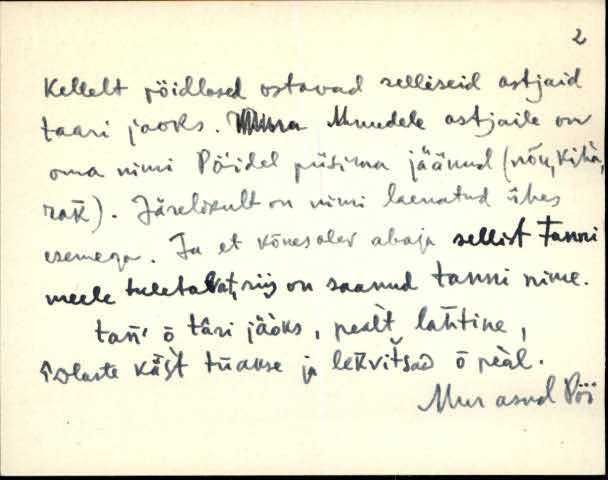 2
Kellelt pöidlased ostavad selliseid astjaid
taari jaoks. Muudele astjaile on
oma nimi Pöidel püsima jäänud (nõu, kihn,
rak̄). Järelikult on nimi laenatud ühes
esemega. Ja et kõnesolev abaja sellist tanni
meele tuletabat, siis on saanud tanni nime.
tań' ō tāri jàoks, pealt lahtine,
käšt tuakse ja lekvitsad ō peàl.
Muu asud Pöi